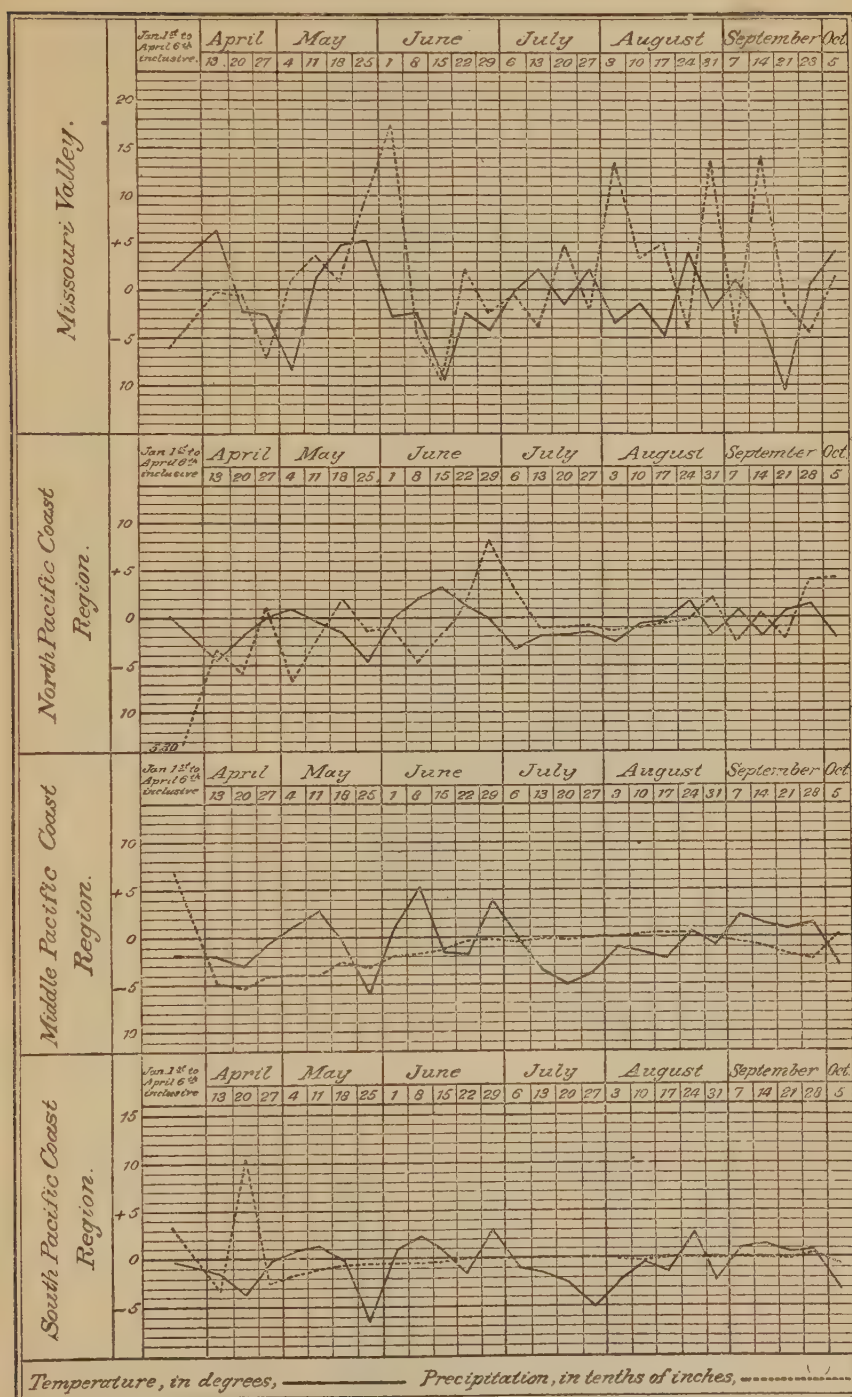 Jan 1st to April 6th inclusive. April May June July August September Oct.
13 20 27 4 11 18 25 1 8 15 22 29 6 13 20 27 3 10 17 24 31 7 14 21 23 5
Missouri Valley.
20
15
10
+5
0
-5
10
Jan 1st to April 6th inclusive April May June July August September Oct.
13 20 27 4 11 18 25 1 8 15 22 29 6 13 20 27 3 10 17 24 31 7 14 21 28 5
North Pacific Coast
Region.
10
+5
0
-5
10
5.30
Jan 1st to April 6th inclusive April May June July August September Oct
13 20 27 4 11 18 25 1 8 15 22 29 6 13 20 27 3 10 17 24 31 7 14 21 28 5
Middle Pacific Coast
Region.
10
+5
0
-5
10
Jan. 1st to April 6th inclusive April May June July August September Oct
13 20 27 4 11 18 25 1 8 15 22 29 6 13 20 27 3 10 17 24 31 7 14 21 28 5
South Pacific Coast
Region.
15
10
+5
0
-5
Temperature, in degrees, Precipitation, in tenths of inches,